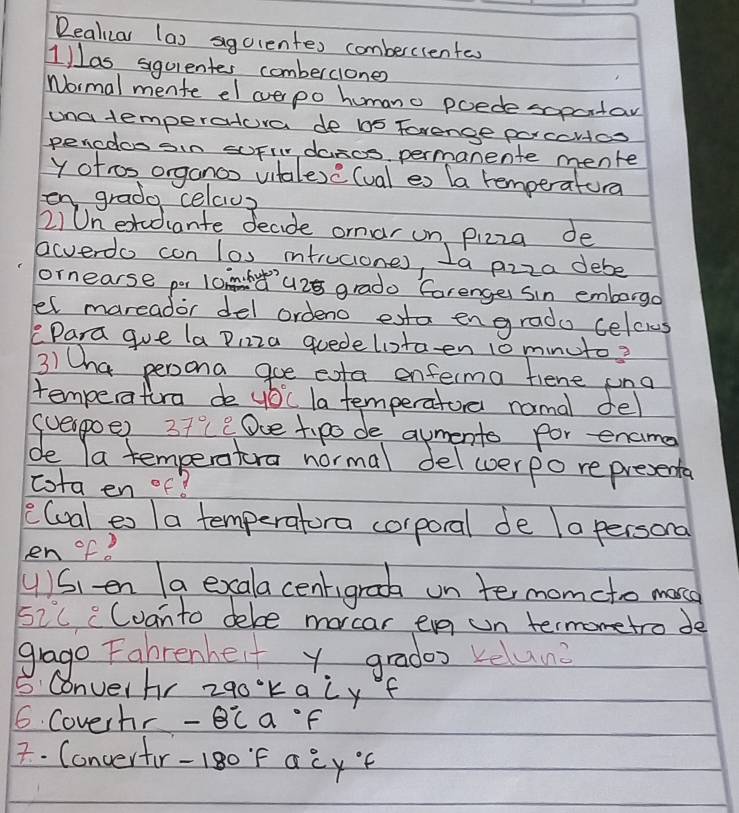 Realizar las siguientes comberciente
1) las siguientes comberciones
Normal mente el cuerpo humano puede soportar
una temperatura de 105 Farenge por cortos
periodos sin sufrir daños permanente mente
y otros organos vitales ¿Cual es la temperatura
en grado celcius?
2) Un estudiante decide ornar un pizza de
acuerdo con los intruciones, la pizza debe
ornearse por 10 minutos a 425 grado farenge, sin embargo
el mareador del ordeno esta en grado celcius
¿Para que la pizza quede lista en 10 minuto?
3) Una persona que esta enferma tiene una
temperatura de 40°C la temperatura normal del
cuerpo es 37°C ¿Que tipo de aumento por encima
de la temperatura normal del cuerpo representa
esta en °F?
¿Cual es la temperatura corporal de la persona
en °F?
4) Si en la escala centigrada un termometro marca
52°C ¿Cuánto debe marcar en un termometro de
grago Fahrenheit y grados kelvin?
5. Convertir 290°K a °C y °F
6. Covertir -8°C a °F
7.- Convertir -180°F a °C y °F